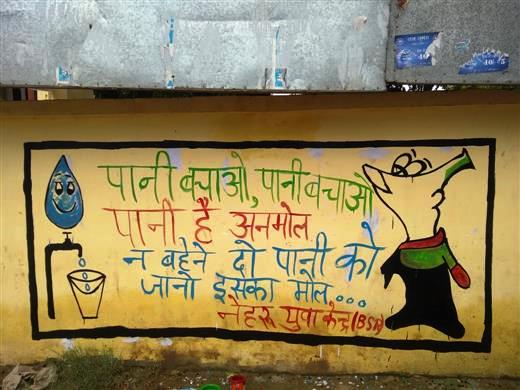 पानी बचाओ, पानी बचाओ
पानी है अनमोल
न बहेने दो पानी को
जानो इसका मोल...
नेहरू युवा केन्द्र (BSR)